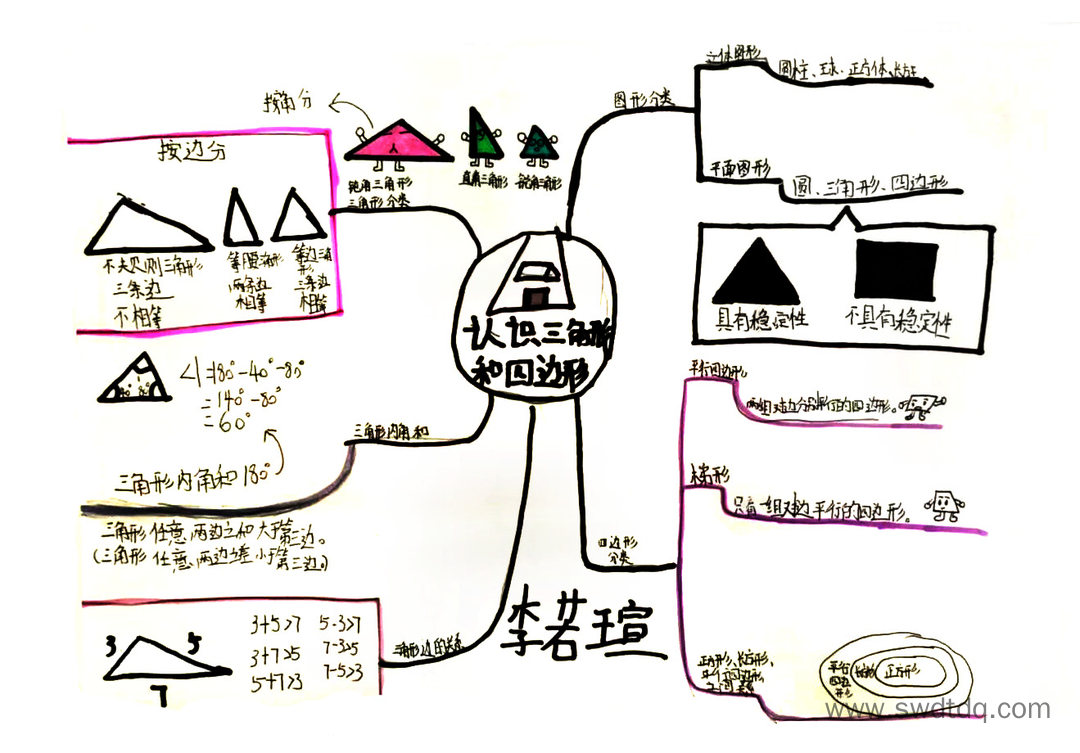 认识三角形
和四边形
图形分类
立体图形
圆柱、球、正方体、长方
平面图形
圆、三角形、四边形
具有稳定性
不具有稳定性
按角分
钝角三角形
直角三角形
锐角三角形
三角形分类
按边分
不规则三角形
三条边
不相等
等腰三角形
两条边
相等
等边三角
形
三条边
相等
∠1=180°-40°-80°
=140°-80°
=60°
三角形内角和
三角形内角和180°
三角形任意两边之和大于第三边。
(三角形任意两边之差小于第三边。)
三角形边的关系
3
5
7
3+5>7 5-3>7
3+7>5 7-3>5
5+7>3 7-5>3
四边形
分类
平行四边形
两组对边分别平行的四边形。
梯形
只有一组对边平行的四边形。
正方形、长方形、
平行四边形
之间关系
平行
四边
形
正方形
李若瑄
www.swdtdq.com